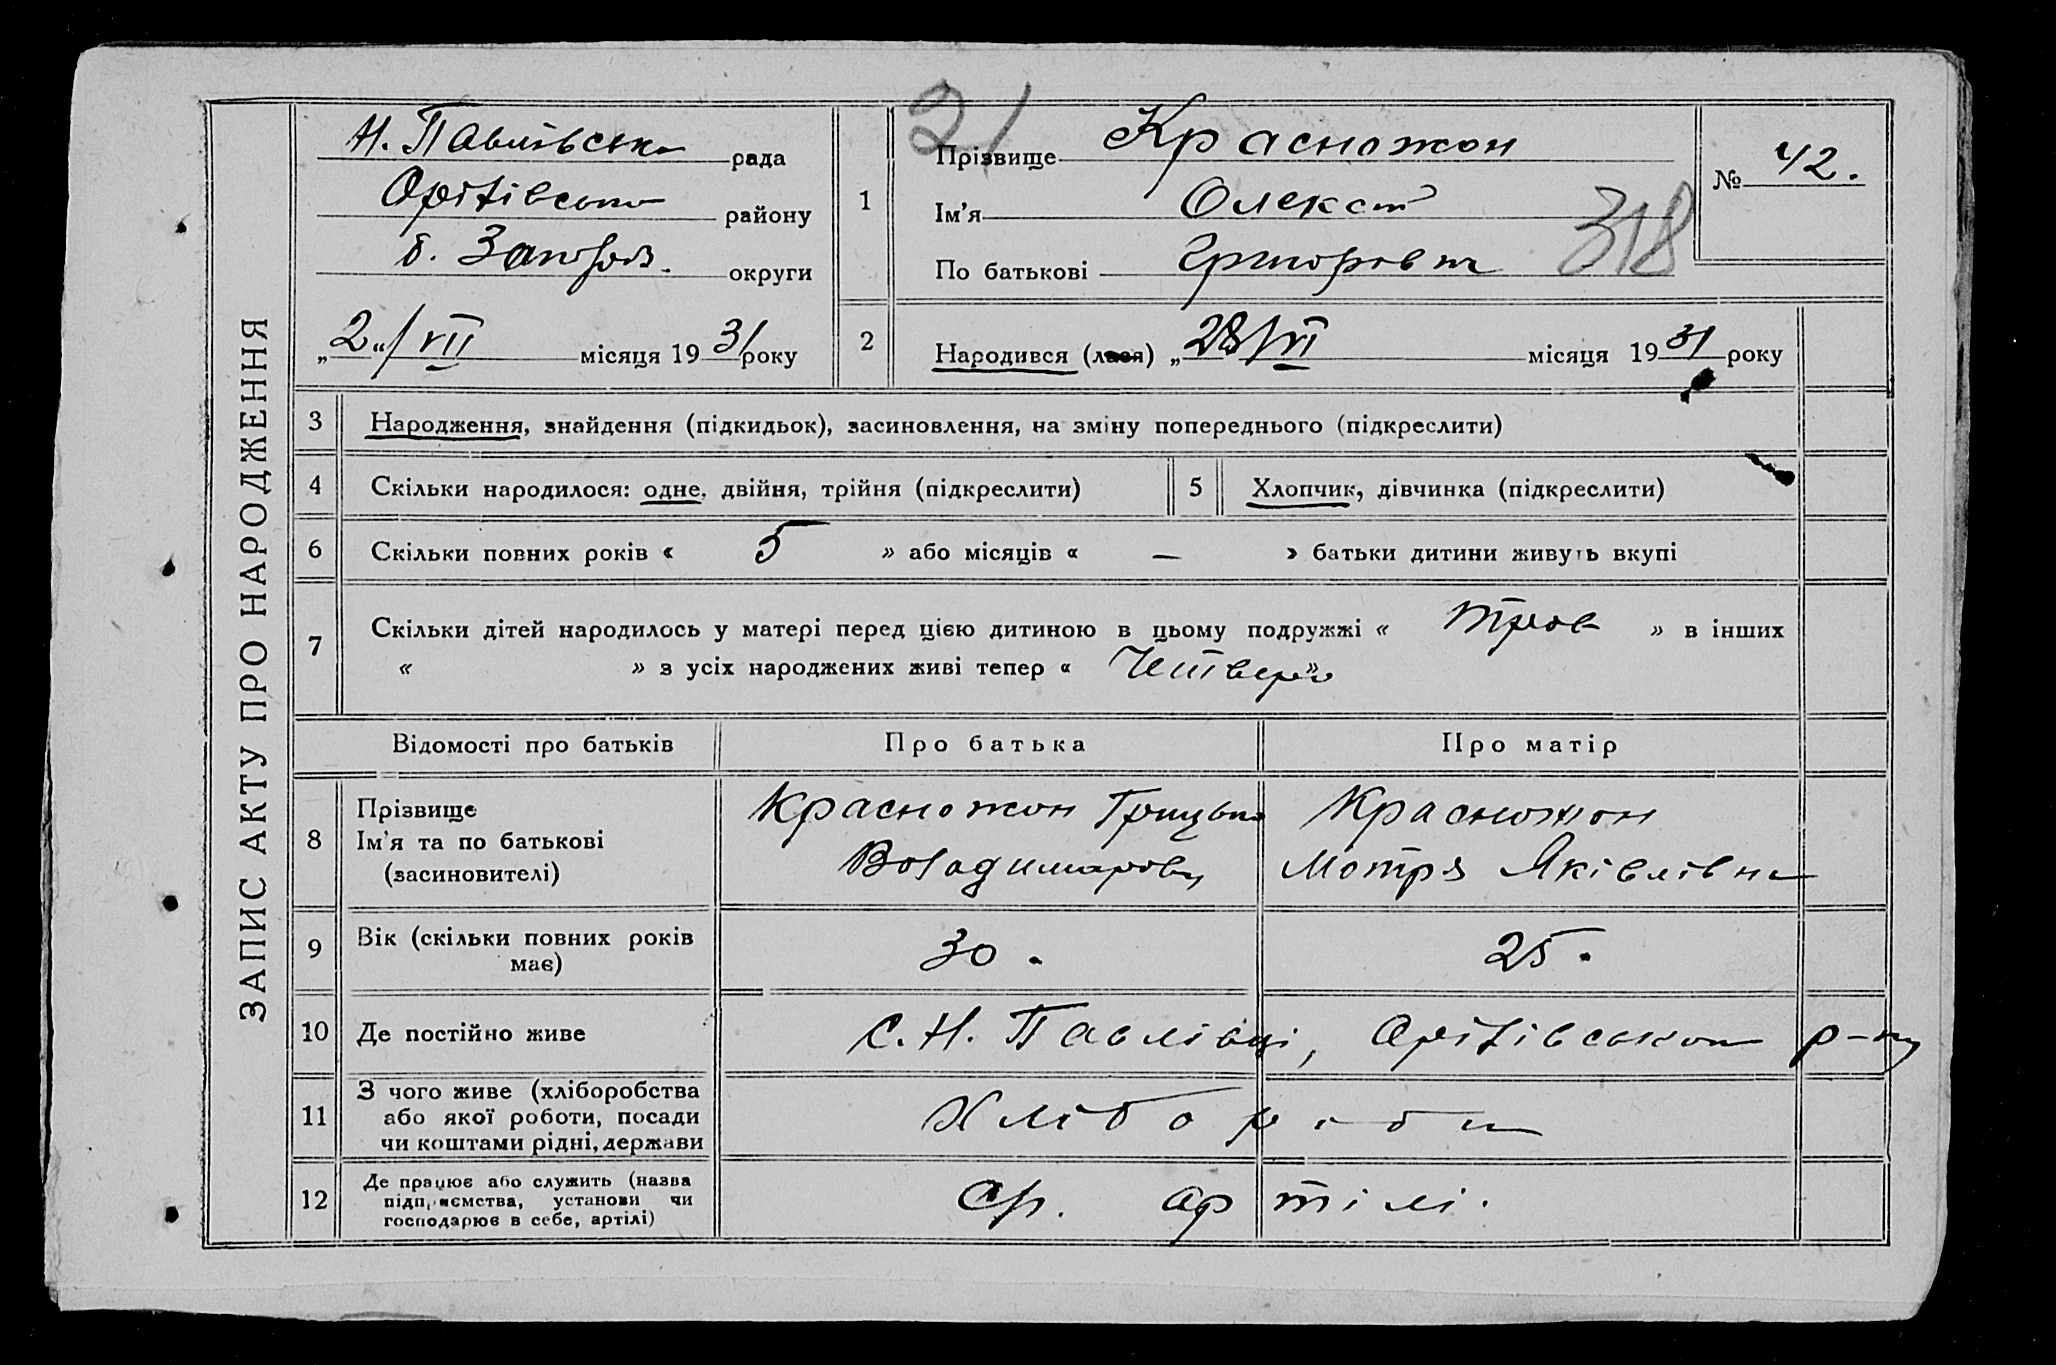 ЗАПИС АКТУ ПРО НАРОДЖЕННЯ
Н. Павлівська рада
Оріхівського району
б. Запоріз. округи
„2“/VII місяця 1931 року
21
1 Прізвище Красножон
Ім'я Олексій
По батькові Григорович
318
№ 42.
2 Народився (лася) „28/VI місяця 1931 року
3 Народження, знайдення (підкидьок), засиновлення, на зміну попереднього (підкреслити)
4 Скільки народилося: одне, двійня, трійня (підкреслити)
5 Хлопчик, дівчинка (підкреслити)
6 Скільки повних років « 5 » або місяців « — » батьки дитини живуть вкупі
7 Скільки дітей народилось у матері перед цією дитиною в цьому подружжі « троє » в інших
« » з усіх народжених живі тепер « Четверо »
Відомості про батьків Про батька Про матір
8 Прізвище
Ім'я та по батькові
(засновителі)
Красножон Грицько
Володимирович
Красножон
Мотря Яківлівна
9 Вік (скільки повних років
має)
30. 25.
10 Де постійно живе С. Н. Павлівці, Оріхівського р-ну
11 З чого живе (хліборобства
або якої роботи, посади
чи коштами рідні, держави
Хлібороби
12 Де працює або служить (назва
підприємства, установи чи
господарює в себе, артілі)
Ср. артілі.